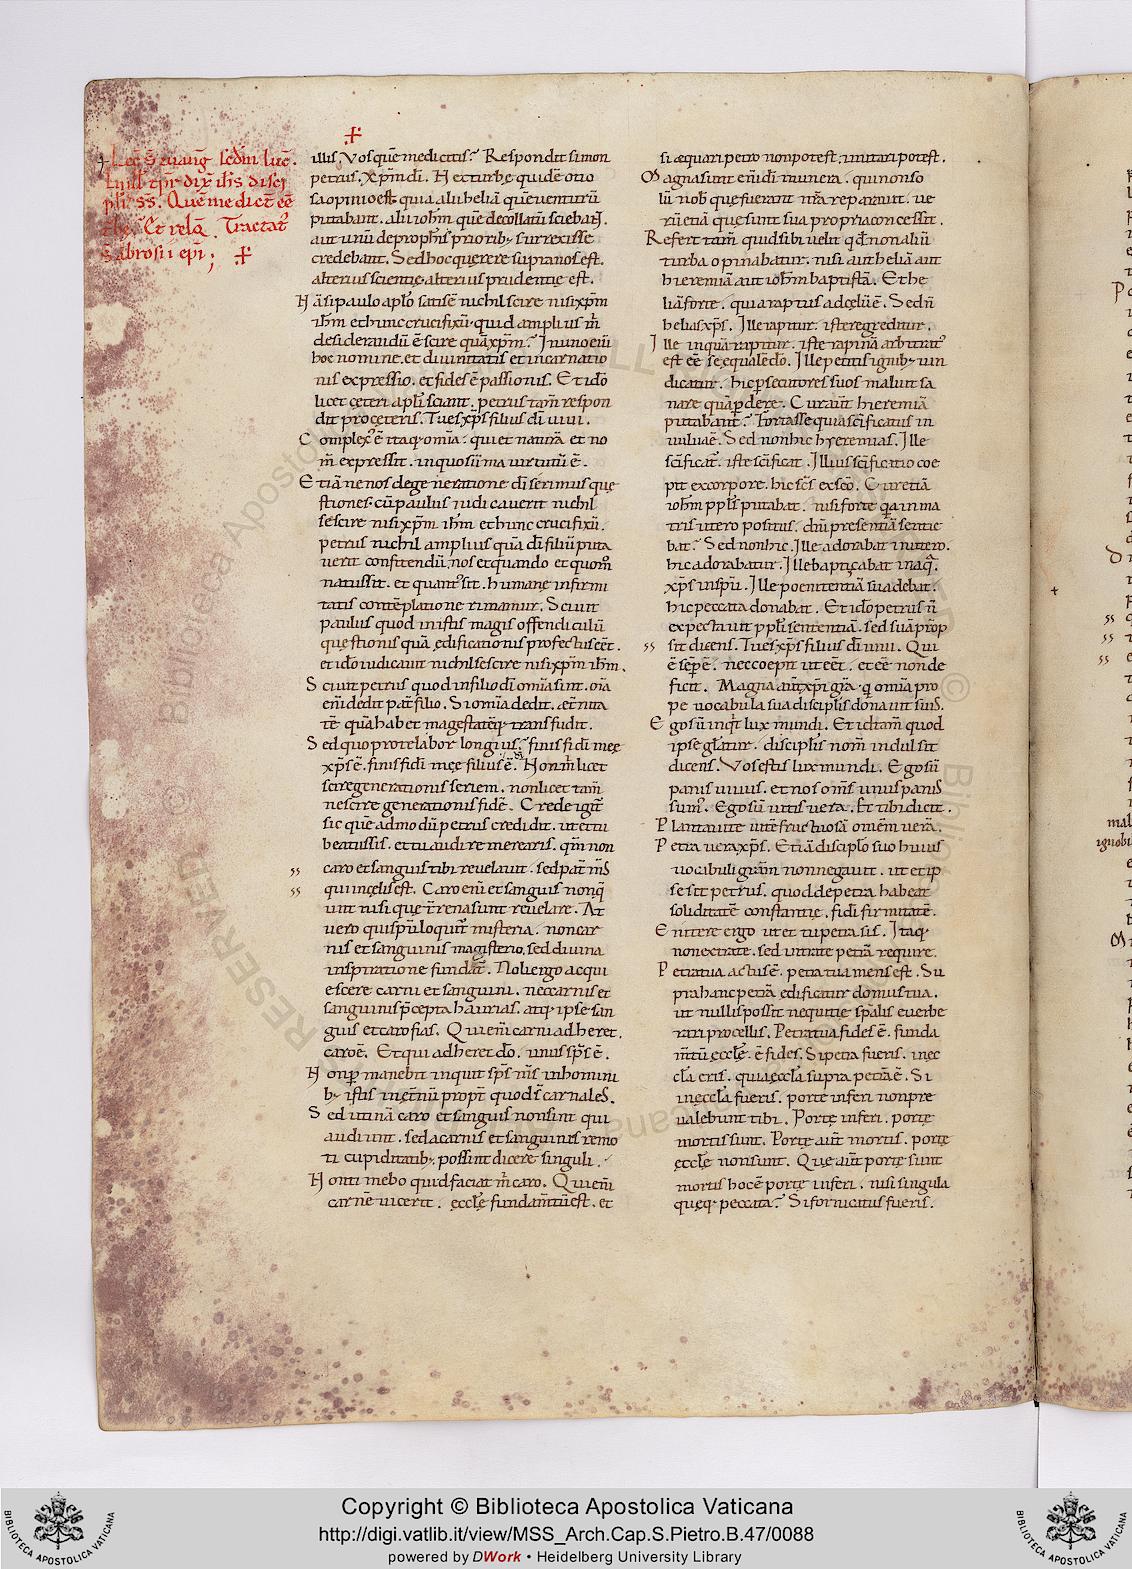 ✢
Lec̄ S̄. euang̃. sc̄dm luc̄.
In ill̃ tp̄r dix̄ ih̄s disci
pl̃i. ss̄. Quē me dic̄t eē
Et relq̃. Tractat᷒
S̄ abrosii ep̄i; ✢
illis. Vos quē me dicitis? Respondit simon
petrus. xp̄m dī. Hec turbę quidē otio
sa opinio est. quia alii heliā quē venturū
putabant. alii ioh̄m quē decollatū sciebat̄.
aut unū de proph̄is priorib; surrexisse
credebant. Sed hoc querere supra nos est.
alterius scientię. alterius prudentię est.
Nā si paulo apl̃o satis ē nichil scire nisi xp̄m
ih̄m et hunc crucifixū. quid amplius m̄
desiderandū ē scire quā xp̄m? In uno eī
hoc nomine. et divinitatis et incarnatio
nis expressio. et fides ē passionis. Et idō
licet cęteri apl̃i sciant. petrus tam̄ respon
dit pro cęteris. Tu es xp̄s filius dī vivi.
Complex᷒ ē itaq; om̄ia. qui et naturā et no
m̄ expressit. in quo sūma virtutū ē.
Etiā ne nos de generatione dī serimus que
stiones. cū paulus iudicaverit nichil
se scire nisi xp̄m ih̄m et hunc crucifixū.
petrus nichil amplius quā dī filiū puta
verit confitendū. nos et quando et quom̄
natus sit. et quant᷒ sit. humanę infirmi
tatis contēplatione rimamur. Scivit
paulus quod in istis magis offendiculū
questionis quā ędificationis profectus eēt.
et idō iudicavit nichil se scire nisi xp̄m ih̄m.
Scivit petrus quod in filio dī om̄ia sunt. oīa
eī dedit pat̄ filio. Si om̄ia dedit. ęt̄nita
tē quā habet magestatēq; transfudit.
Sed quo protelabor longius? finis fidī meę
xp̄s ē. finis fidī meę filius ē. Non m̄ licet
scire generationis seriem. non licet tam̄
nescire generationis fidē. Crede igit̄
sic quē admodū petrus credidit. ut et tu
beatus sis. et tu audire merearis. qm̄ non
caro et sanguis tibi revelavit. sed pat̄ m̄s
qui in cęlis est. Caro eī et sanguis non q̄
unt nisi que t̄rena sunt revelare. At
vero qui sp̄u loquit̄ misteria. non car
nis et sanguinis magisterio. sed divina
inspiratione fundat̄. Noli ergo acqui
escere carni et sanguini. nec carnis et
sanguinis p̄cepta haurias. atq; ipse san
guis et caro fias. Qui eī carni adheret.
caro ē. Et qui adheret dō. unus sp̄s ē.
Non p̄manebit inquit sp̄s m̄s in homini
b; istis in et̄nū propt̄ quod s̄ carnales.
Sed utinā caro et sanguis non sint qui
audiunt. sed a carnis et sanguinis remo
ti cupiditatib; possint dicere singuli.
Non timebo quid faciat m̄ caro. Qui eī
carnē vicerit. ęcclę fundam̄tū est. et
si ęquari petro non potest. imitari potest.
Magna sunt eī dī munera. qui non so
lū nob̄ que fuerant nr̄a reparavit. ve
rū etiā que sunt sua propria concessit.
Refert tam̄ quid sibi velit qd̄ non aliū
turba opinabatur. nisi aut heliā aut
hieremiā aut ioh̄m baptistā. Et he
liā forte. quia raptus ad cęlū ē. Sed n̄
helias xp̄s. Ille rapitur. iste regreditur.
Ille inquā rapitur. iste rapinā arbitrat᷒
est eē se equalē dō. Ille petitus ignib; vin
dicatur. hic p̄secutores suos maluit sa
nare quā p̄dere. Cur aūt hieremiā
putabant? Fortasse quia sc̄ificatus in
vulva ē. Sed non hic hyeremias. Ille
sc̄ificat᷒. iste sc̄ificat. Illius sc̄ificatio coe
pit ex corpore. hic sc̄s ex sc̄o. Cur etiā
ioh̄m ppl̃s putabat. nisi forte quia in ma
tris utero positus. dn̄i presentiā sentie
bat? Sed non hic. Ille adorabat in utero.
hic adorabatur. Ille baptiçabat in aq̄.
xp̄s in sp̄u. Ille poenitentiā suadebat.
hic peccata donabat. Et idō petrus n̄
expectavit ppl̃i sententiā. sed suā prōp
sit dicens. Tu es xp̄s filius dī vivi. Qui
ē semp̄ ē. nec coepit ut eēt. et eē non de
ficit. Magna aūt xp̄i gr̄a. q̄ om̄ia pro
pe vocabula sua disciplis donavit suis.
Ego sū inq̄t lux mundi. Et id tam̄ quod
ipse gl̃atur. disciplis nom̄ indulsit
dicens. Vos estis lux mundi. Ego sū
panis vivus. et nos om̄s unus panis
sum᷒. Ego sū vitis vera. Et tibi dicit.
Plantavi te vitē fructuosā om̄em verā.
Petra vera xp̄s. Etiā disciplo suo huius
vocabuli gr̄am non negavit. ut et ip
se sit petrus. quod de petra habeat
soliditatē constantię. fidī firmitatē.
Enitere ergo ut et tu petra sis. Itaq;
non ext̄ra te. sed intra te petrā require.
Petra tua actus ē. petra tua mens est. Su
pra hanc petrā ędificatur domus tua.
ut nullis possit nequitię sp̄alis everbe
rari procellis. Petra tua fides ē. funda
m̄tū ęcclę ē fides. Si petra fueris. in ęc
cl̃a eris. quia ęccl̃a supra petrā ē. Si
in ęccl̃a fueris. portę inferi non pre
valebunt tibi. Portę inferi. portę
mortis sunt. Portę aūt mortis. portę
ęcclę non sunt. Que aūt portę sunt
mortis hoc ē portę inferi. nisi singula
queq; peccata? Si fornicatus fueris.
Copyright © Biblioteca Apostolica Vaticana
http://digi.vatlib.it/view/MSS_Arch.Cap.S.Pietro.B.47/0088
powered by DWork • Heidelberg University Library